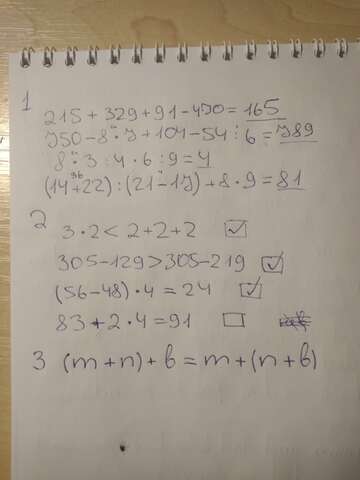 1
215 + 329 + 91 - 470 = 165
750 - 8 · 7 + 104 - 54 : 6 = 789
8 · 3 : 4 · 6 : 9 = 4
36
(14 + 22) : (21 - 17) + 8 · 9 = 81
2
3 · 2 < 2 + 2 + 2 ☑
305 - 129 > 305 - 219 ☑
(56 - 48) · 4 = 24 ☑
83 + 2 · 4 = 91 ☐
3 (m + n) + b = m + (n + b)